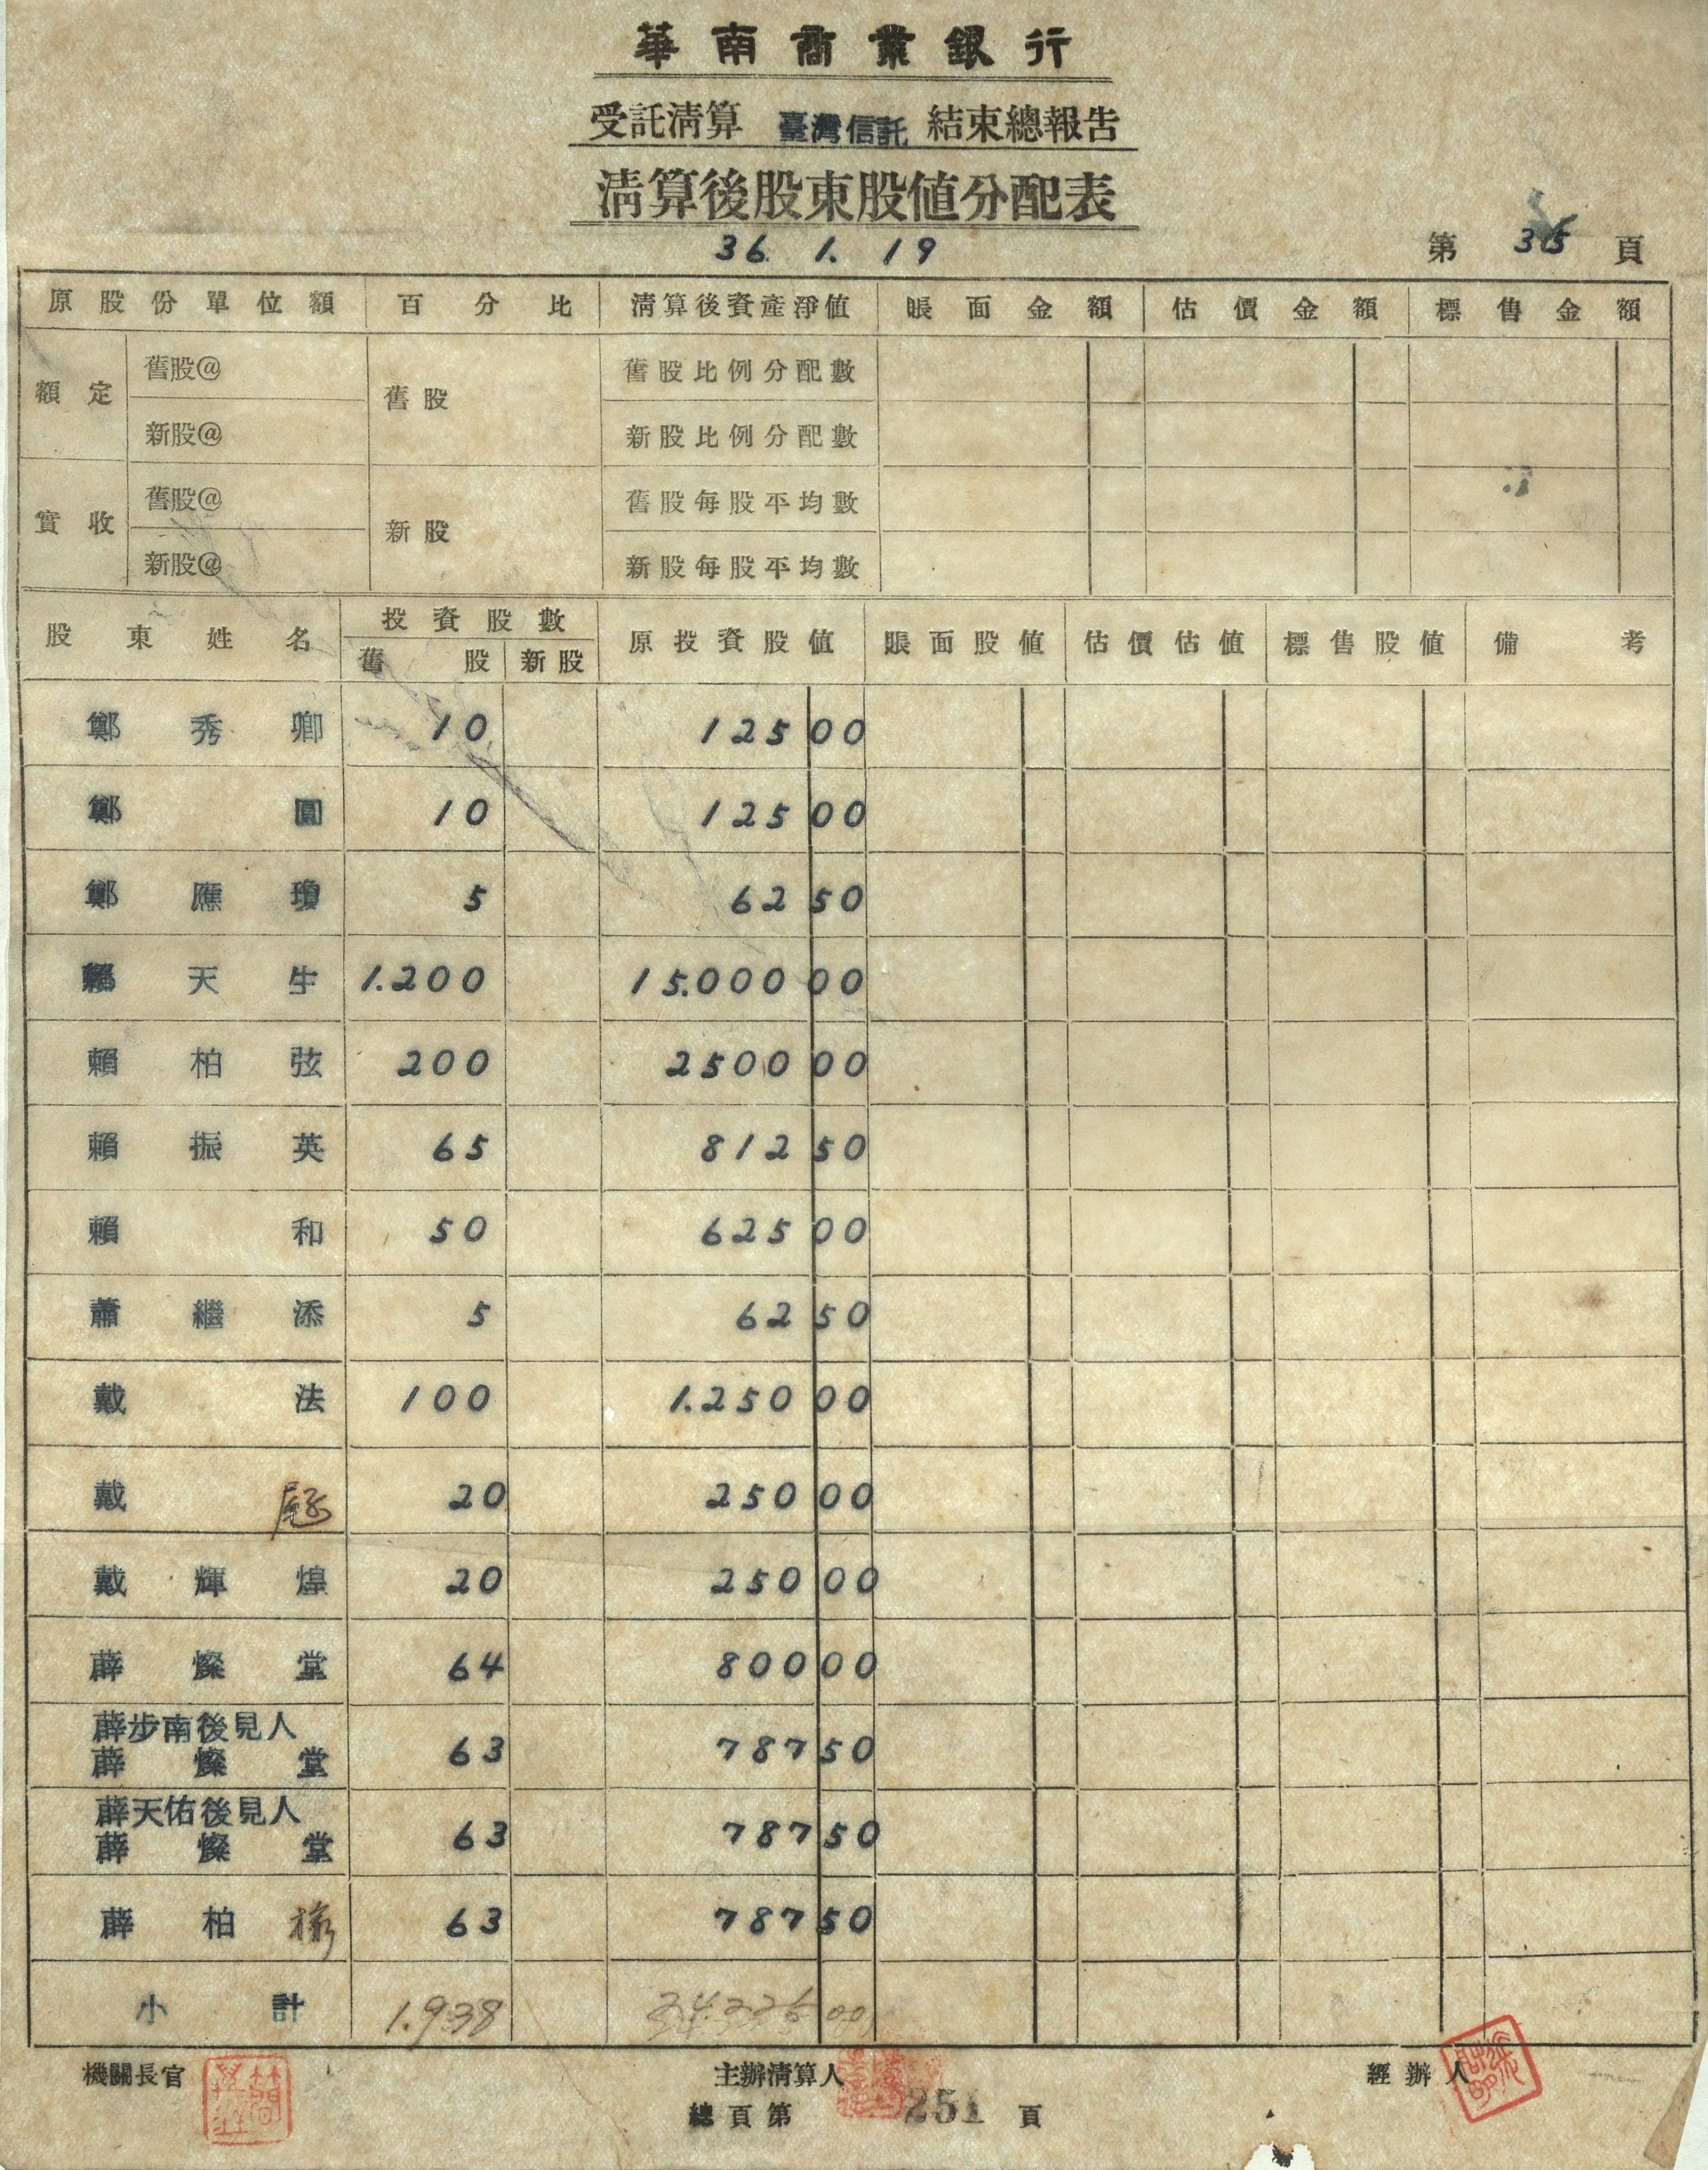 華南商業銀行
受託清算 臺灣信託 結束總報告
清算後股東股值分配表
36. 1. 19
第 35 頁
原股份單位額 百分比 清算後資產淨值 賬面金額 估價金額 標售金額
額定 舊股@ 舊股 舊股比例分配數
新股@ 新股比例分配數
實收 舊股@ 新股 舊股每股平均數
新股@ 新股每股平均數
股東姓名 投資股數 原投資股值 賬面股值 估價估值 標售股值 備考
舊股 新股
鄭秀卿 10 125 00
鄭圓 10 125 00
鄭應瓊 5 62 50
賴天生 1.200 15.000 00
賴柏弦 200 2500 00
賴振英 65 812 50
賴和 50 625 00
蕭繼添 5 62 50
戴法 100 1.250 00
戴 20 250 00
戴輝煌 20 250 00
薛燦堂 64 800 00
薛步南後見人
薛燦堂 63 787 50
薛天佑後見人
薛燦堂 63 787 50
薛柏 63 787 50
小計 1.938 24.225 00
機關長官 主辦清算人 經辦人
總頁第 251 頁